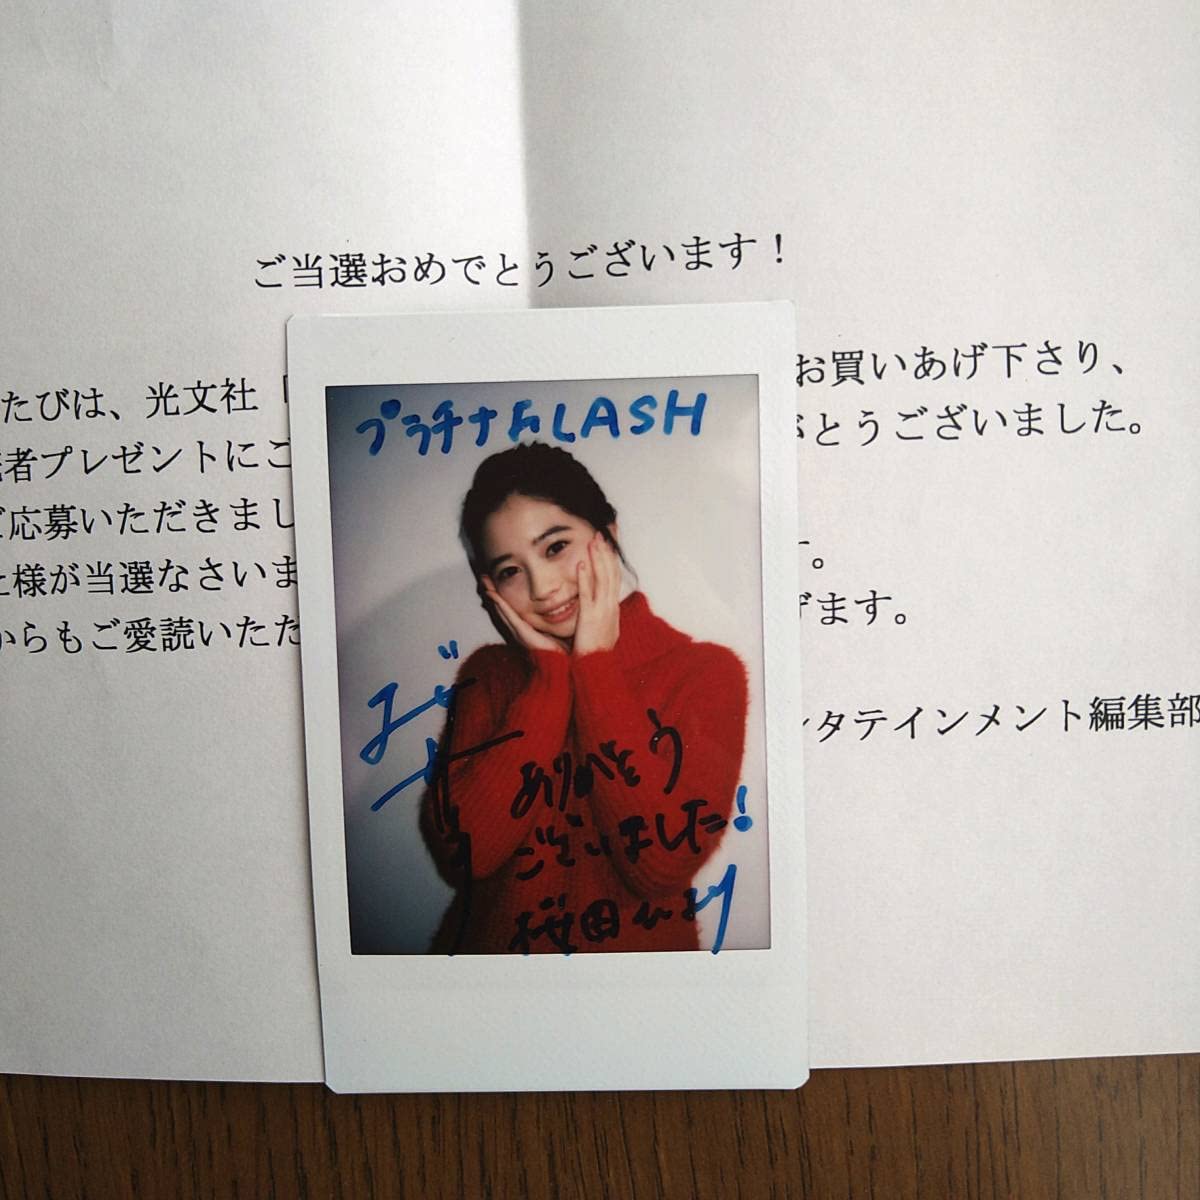 ご当選おめでとうございます！
たびは、光文社「
お買いあげ下さり、
者プレゼントにご
がとうございました。
ご応募いただきまし
様が当選なさいま
す。
からもご愛読いただ
げます。
ンタテインメント編集部
プラチナFLASH
ありがとう
ございました!
桜田ひより